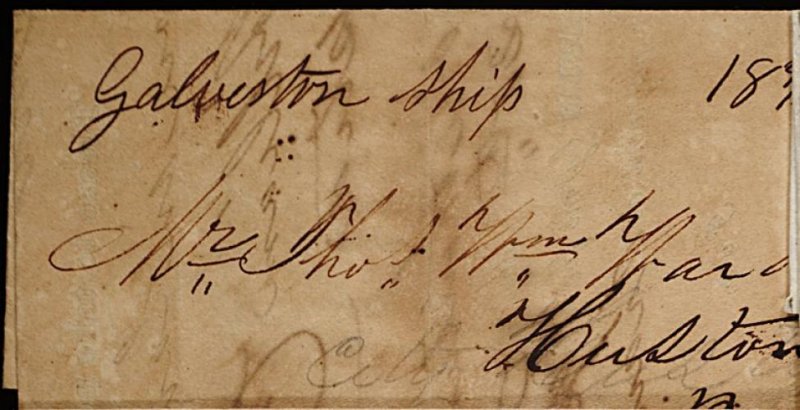 Galveston ship 18
Mr Thos Wm Ward
Huston